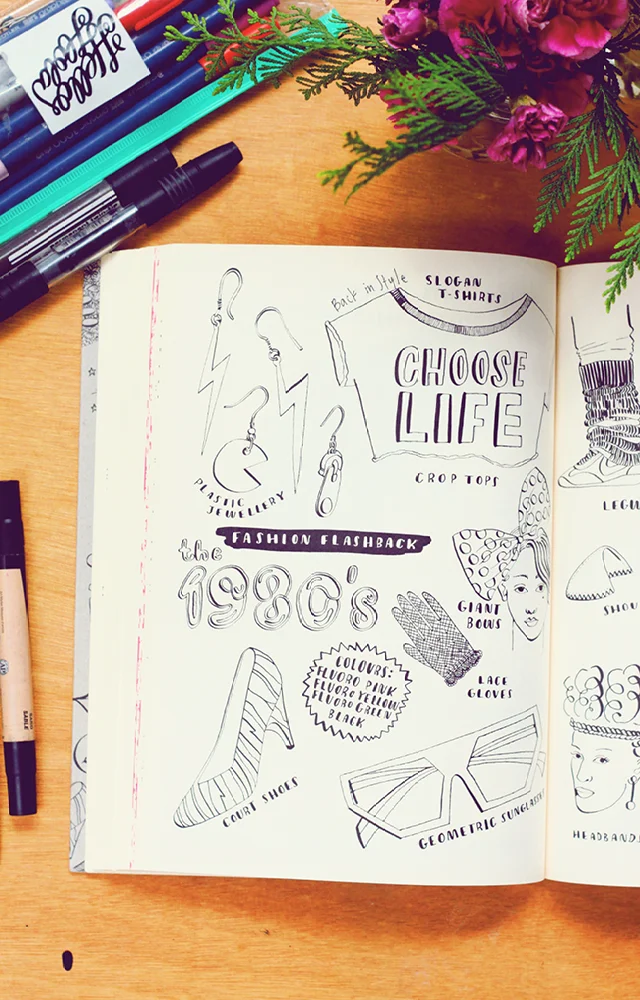 Back in Style
SLOGAN
T-SHIRTS
CHOOSE
LIFE
CROP TOPS
PLASTIC
JEWELLERY
FASHION FLASHBACK
the
1980's
GIANT
BOWS
LACE
GLOVES
COLOURS:
FLUORO PINK
FLUORO YELLOW
FLUORO GREEN
BLACK
COURT SHOES
GEOMETRIC SUNGLASSES
LEGW
SHOU
HEADBAND